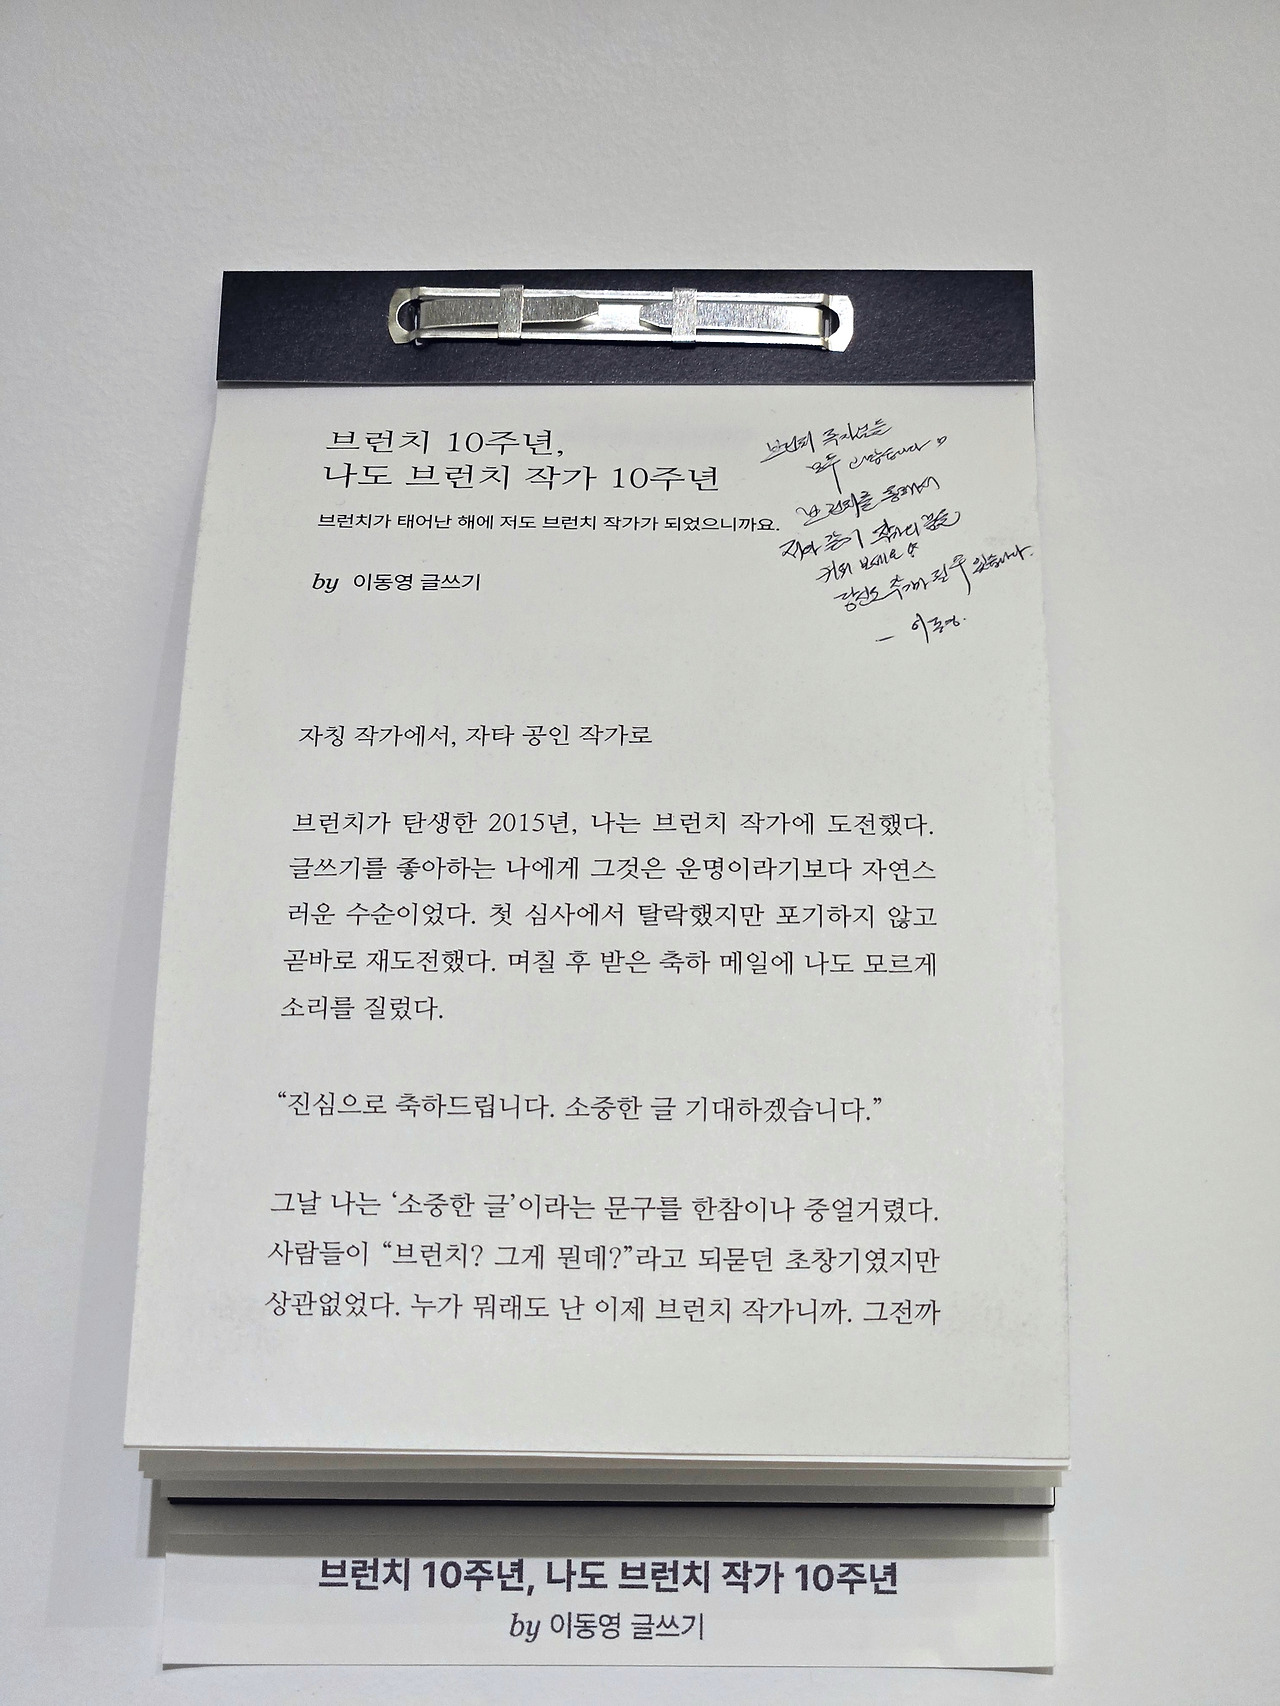 브런치 10주년,
나도 브런치 작가 10주년
브런치가 태어난 해에 저도 브런치 작가가 되었으니까요.
by 이동영 글쓰기
브런치 독자님들
모두 고맙습니다♡
브런치를 통해서
작가의 꿈을
키워 보세요
당신도 작가가 될 수 있습니다.
— 이동영.
자칭 작가에서, 자타 공인 작가로
브런치가 탄생한 2015년, 나는 브런치 작가에 도전했다.
글쓰기를 좋아하는 나에게 그것은 운명이라기보다 자연스
러운 수순이었다. 첫 심사에서 탈락했지만 포기하지 않고
곧바로 재도전했다. 며칠 후 받은 축하 메일에 나도 모르게
소리를 질렀다.
“진심으로 축하드립니다. 소중한 글 기대하겠습니다.”
그날 나는 ‘소중한 글’이라는 문구를 한참이나 중얼거렸다.
사람들이 “브런치? 그게 뭔데?”라고 되묻던 초창기였지만
상관없었다. 누가 뭐래도 난 이제 브런치 작가니까. 그전까
브런치 10주년, 나도 브런치 작가 10주년
by 이동영 글쓰기